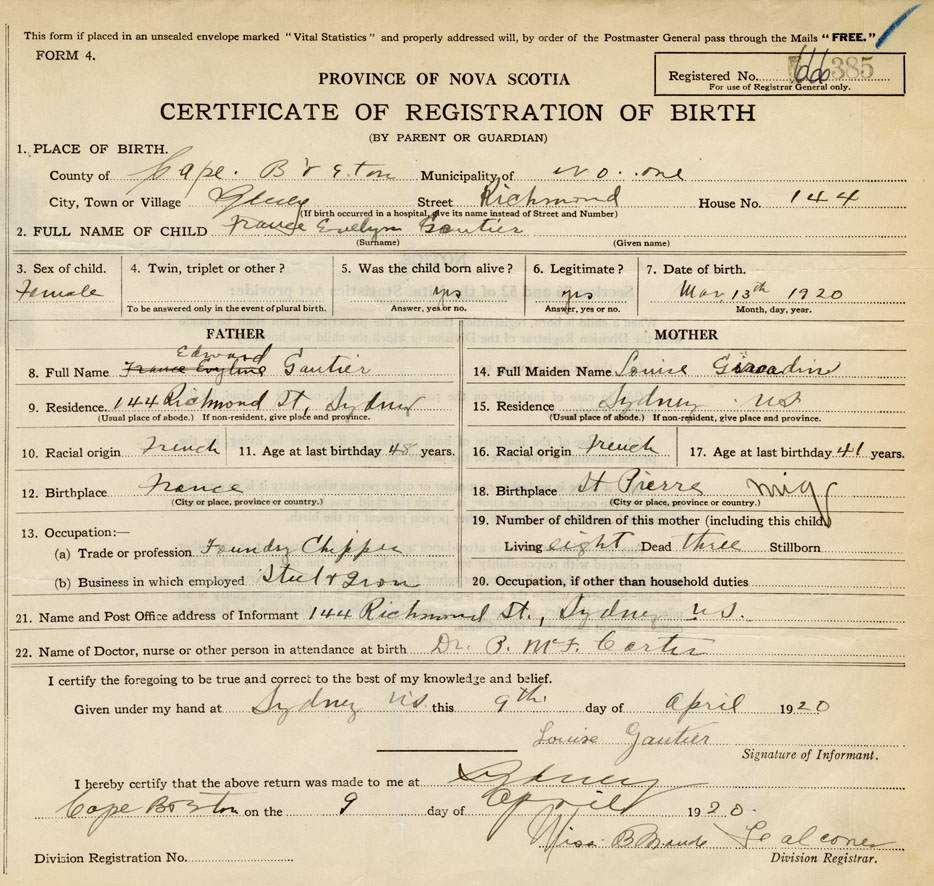 This form if placed in an unsealed envelope marked "Vital Statistics" and properly addressed will, by order of the Postmaster General pass through the Mails "FREE."
FORM 4.
PROVINCE OF NOVA SCOTIA
Registered No. 385
For use of Registrar General only.
CERTIFICATE OF REGISTRATION OF BIRTH
(BY PARENT OR GUARDIAN)
1. PLACE OF BIRTH.
County of Cape. Breton Municipality of No. one
City, Town or Village Street Richmond House No. 144
(If birth occurred in a hospital, give its name instead of Street and Number)
2. FULL NAME OF CHILD France Evelyn Gautier
(Surname) (Given name)
3. Sex of child. 4. Twin, triplet or other? 5. Was the child born alive? 6. Legitimate? 7. Date of birth.
Female yes yes Mar 13th 1920
To be answered only in the event of plural birth. Answer, yes or no. Answer, yes or no. Month, day, year.
FATHER
Edward
8. Full Name France Evyline Gautier
9. Residence. 144 Richmond St, Sydney
(Usual place of abode.) If non-resident, give place and province.
10. Racial origin French 11. Age at last birthday 48 years.
12. Birthplace France
(City or place, province or country.)
13. Occupation:—
(a) Trade or profession Foundry Chipper
(b) Business in which employed Steel & Iron
MOTHER
14. Full Maiden Name Louise
15. Residence Sydney NS
(Usual place of abode.) If non-resident, give place and province.
16. Racial origin French 17. Age at last birthday 41 years.
18. Birthplace St Pierre Miq
(City or place, province or country.)
19. Number of children of this mother (including this child)
Living eight Dead three Stillborn
20. Occupation, if other than household duties
21. Name and Post Office address of Informant 144 Richmond St., Sydney N.S.
22. Name of Doctor, nurse or other person in attendance at birth Dr. McF. Carter
I certify the foregoing to be true and correct to the best of my knowledge and belief.
Given under my hand at Sydney NS this 9th day of April 1920
Louise Gautier
Signature of Informant.
I hereby certify that the above return was made to me at Sydney
Cape Breton on the 9 day of April 1920
Miss B Maude Falconer
Division Registration No.
Division Registrar.